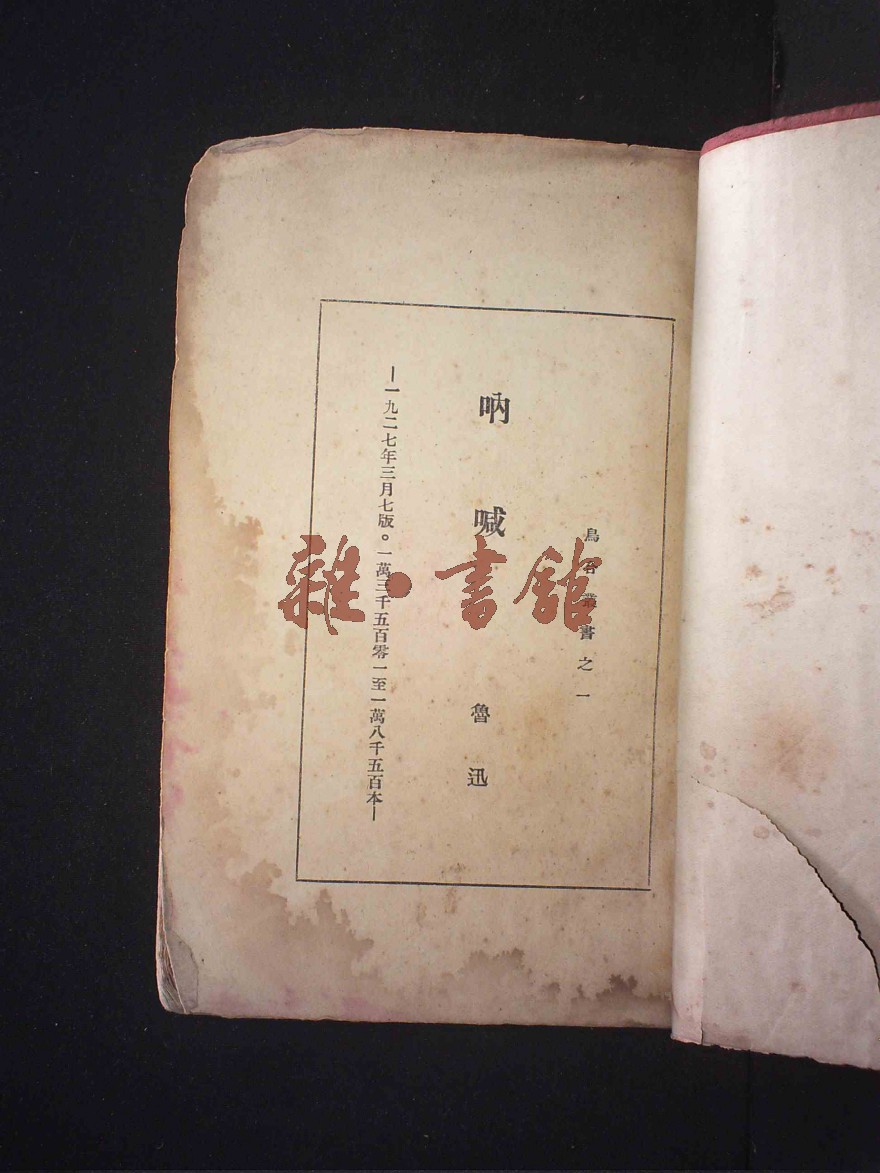 烏合叢書之一
吶喊
魯迅
—一九二七年三月七版。一萬三千五百零一至一萬八千五百本—
雜·書館